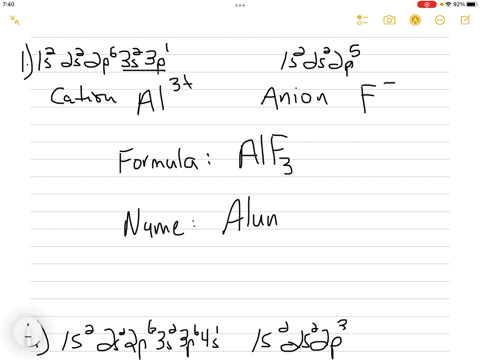 7:40
92%
1.) 1s² 2s² 2p⁶ 3s² 3p¹ 1s² 2s² 2p⁵
Cation Al³⁺ Anion F⁻
Formula: AlF₃
Name: Alun
1s² 2s² 2p⁶ 3s² 3p⁶ 4s¹ 1s² 2s² 2p³